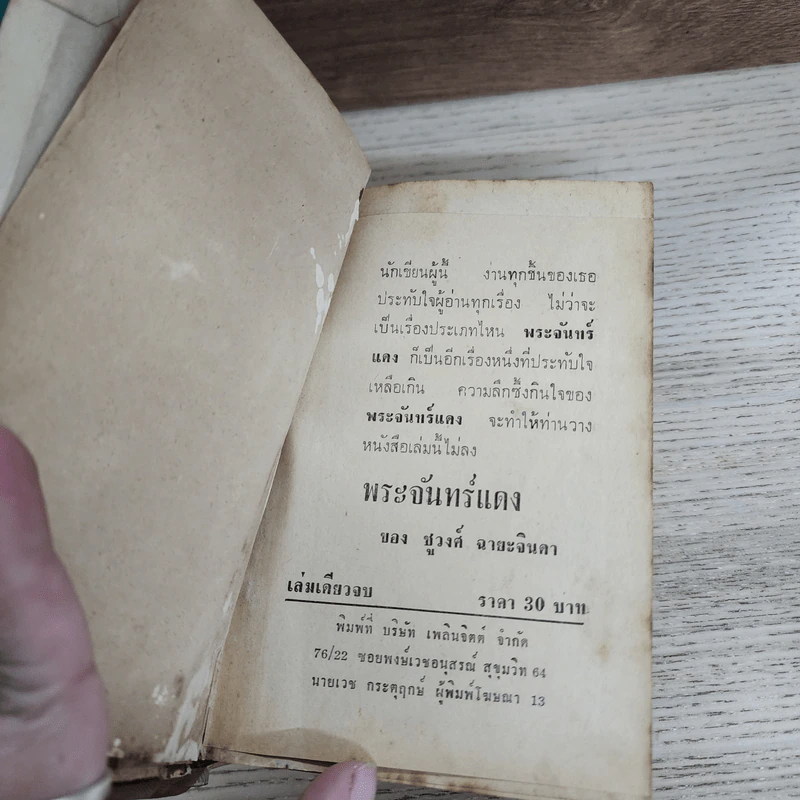 นักเขียนผู้นี้ งานทุกชิ้นของเธอ
ประทับใจผู้อ่านทุกเรื่อง ไม่ว่าจะ
เป็นเรื่องประเภทไหน พระจันทร์
แดง ก็เป็นอีกเรื่องหนึ่งที่ประทับใจ
เหลือเกิน ความลึกซึ้งกินใจของ
พระจันทร์แดง จะทำให้ท่านวาง
หนังสือเล่มนี้ไม่ลง
พระจันทร์แดง
ของ ชูวงศ์ ฉายะจินดา
เล่มเดียวจบ ราคา 30 บาท
พิมพ์ที่ บริษัท เพลินจิตต์ จำกัด
76/22 ซอยพงษ์เวชอนุสรณ์ สุขุมวิท 64
นายเวช กระตุฤกษ์ ผู้พิมพ์โฆษณา 13